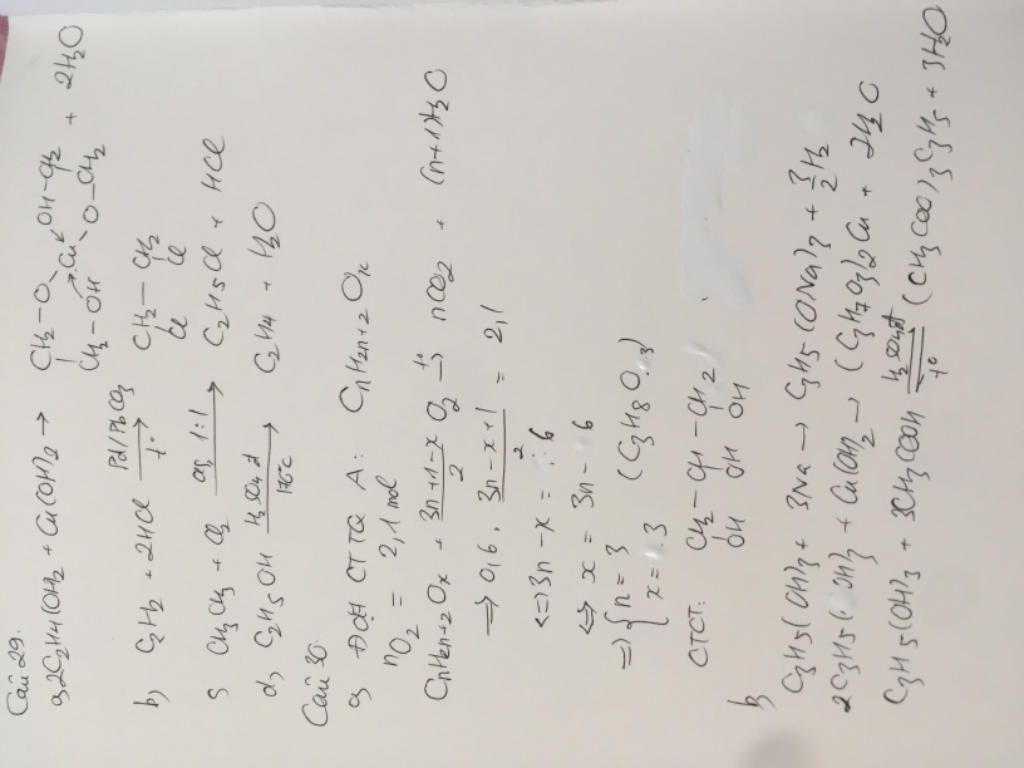 Câu 29.
a, 2C2H4(OH)2 + Cu(OH)2 → CH2-O Cu OH-CH2 + 2H2O
CH2-OH O-CH2
b, C2H2 + 2HCl Pd/PbCO3 t° → CH2 - CH2
Cl Cl
c, CH3CH3 + Cl2 as, 1:1 → C2H5Cl + HCl
d, C2H5OH H2SO4 đ 170°C → C2H4 + H2O
Câu 30
a, Đặt CTTQ A: CnH2n+2Ox
nO2 = 2,1 mol
CnH2n+2Ox + 3n+1-x/2 O2 t° → nCO2 + (n+1)H2O
⇒ 0,6 . 3n-x+1/2 = 2,1
⇔ 3n - x = 6
⇔ x = 3n - 6
⇒ { n = 3
x = 3 (C3H8O3)
CTCT: CH2 - CH - CH2
OH OH OH
b,
C3H5(OH)3 + 3Na → C3H5(ONa)3 + 3/2 H2
2C3H5(OH)3 + Cu(OH)2 → (C3H7O3)2Cu + 2H2O
C3H5(OH)3 + 3CH3COOH H2SO4đ t° ⇌ (CH3COO)3C3H5 + 3H2O